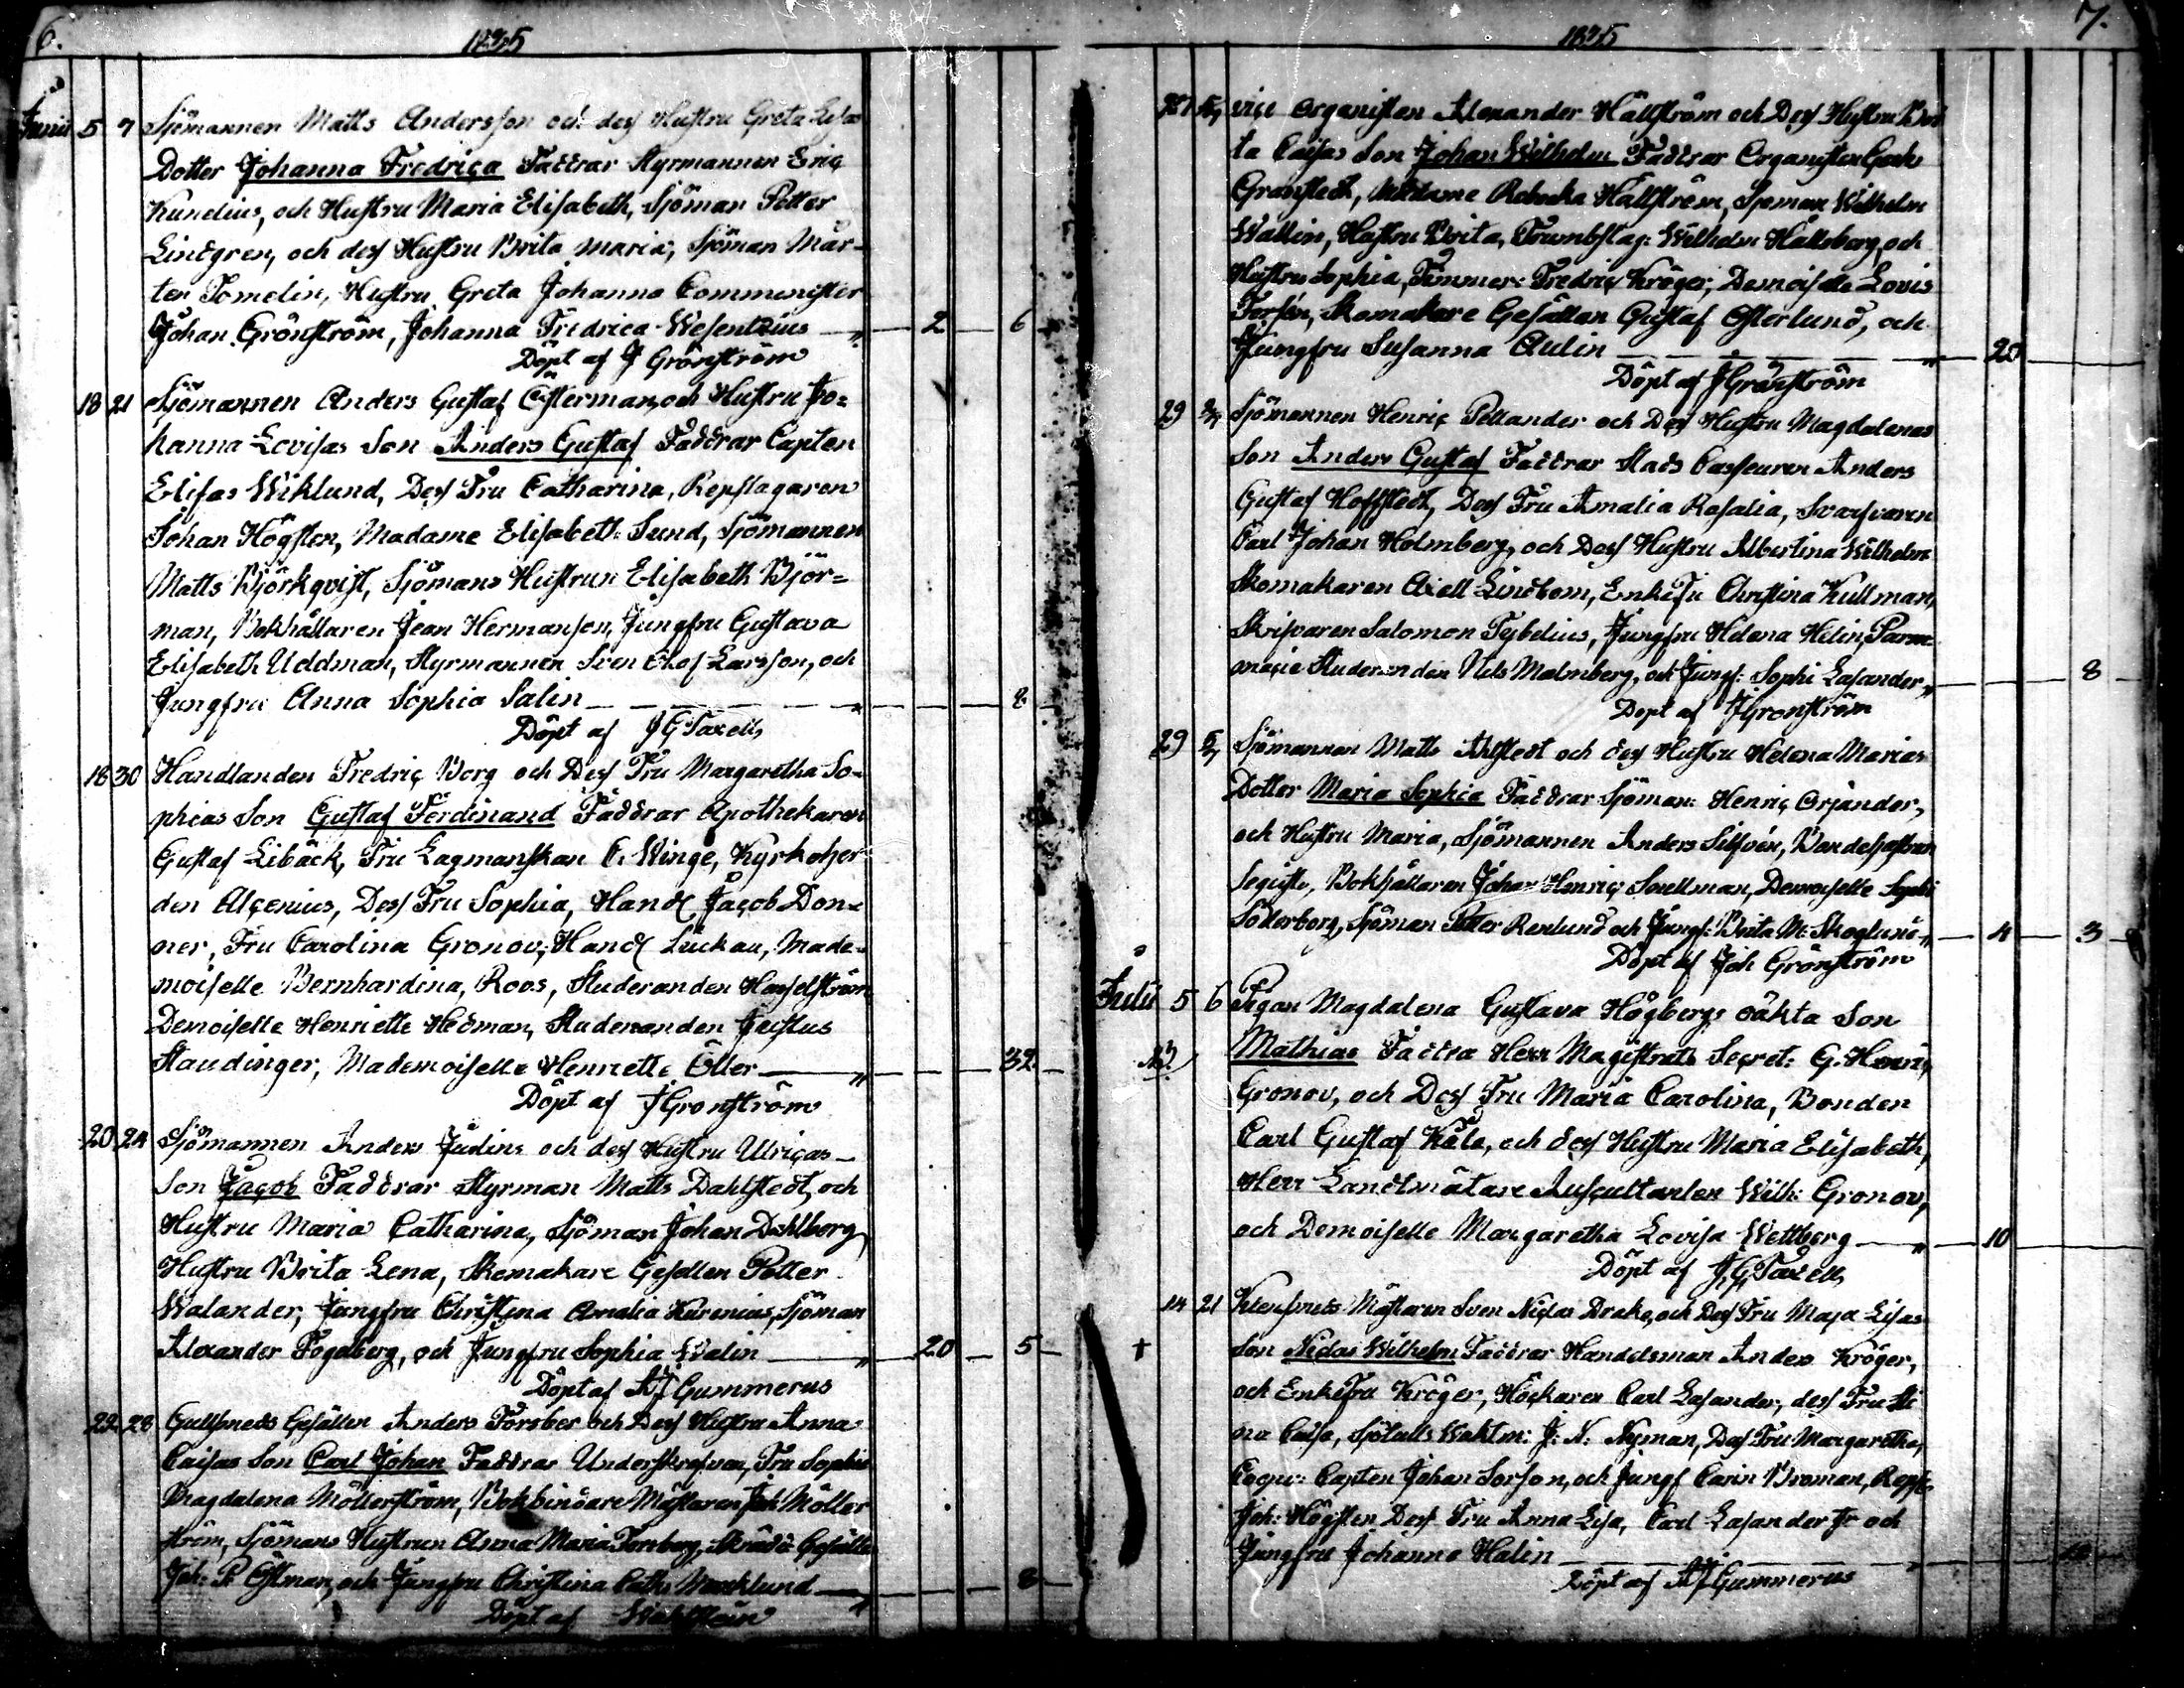 6.
1835
Junii 5 7 Sjömannen Matts Andersson och dess Hustru Greta Lisas
Dotter Johanna Fredrica Faddrar Styrmannen Eric
Kunelius, och Hustru Maria Elisabeth, Sjöman Petter
Lindgren, och dess Hustru Brita Maria, Sjöman Mår-
ten Tomelin, Hustru Greta Johanna Comminister
Johan Grönström, Johanna Fredrica Wesentzius — " — 2 — 6
Döpt af J Grönström
18 21 Sjömannen Anders Gustaf Österman, och Hustru Jo-
hanna Lovisas Son Anders Gustaf Faddrar Capten
Elisas Wiklund, Dess Fru Catharina, Repslagaren
Johan Högsten, Madame Elisabeth Sund, Sjömannen
Matts Björkqvist, Sjömans Hustrun Elisabeth Björ-
man, Bokhållaren Jean Hermanson, Jungfru Gustava
Elisabeth Uddman, Styrmannen Sven Olof Larsson, och
Jungfru Anna Sophia Salin — " — 8
Döpt af J G Taxell,
18 30 Handlanden Fredric Borg och Dess Fru Margaretha So-
phias Son Gustaf Ferdinand Faddrar Apothekaren
Gustaf Libäck, Fru Lagmanskan C. Winge, Kyrkoher-
den Alcenius, Dess Fru Sophia, Handl Jacob Don-
ner, Fru Carolina Gronov, Handl Luckau, Made-
moiselle Bernhardina, Roos, Studeranden Hasselström
Demoiselle Henriette Hedman, Studeranden Justus
Staudinger, Mademoiselle Henriette Öller — " — 32.
Döpt af J Gronström
20 24 Sjömannen Anders Judins och dess Hustru Ulricas
Son Jacob Faddrar Styrman Matts Dahlstedt, och
Hustru Maria Catharina, Sjöman Johan Dahlberg
Hustru Brita Lena, Skomakare Gesellen Petter
Walander, Jungfru Christina Amalia Kurenias, Sjöman
Alexander Fogelberg, och Jungfru Sophia Walin — " — 20 — 5
Döpt af A J Gummerus
22 28 Gullsmeds Gesällen Anders Forsber och Dess Hustru Anna
Caisas Son Carl Johan Faddrar Underskrefven, Fru Sophia
Magdalena Möllerström, Bokbindare Mästaren Joh Möller
ström, Sjömans Hustrun Anna Maria Forsberg, Skrädd: Gesällen
Joh: P. Östman, och Jungfru Christina Cath: Marklund — " — 8
Döpt af Wahlstein
7.
1835
vice Organisten Alexander Hällström och Dess Hustru Bri
ta Caisas Son Johan Wilhelm Faddrar Organisten
Granstedt, Madame Rebecka Hällström, Sjöman Wilhelm
Wallin, Hustru Brita, Trumbslag: Wilhelm Hallsberg, och
Hustru Sophia, Timmer: Fredric Kröger, Demoiselle Lovis
Forsén, Skomakare Gesällen Gustaf Österlund, och
Jungfru Susanna Aulin — " — 20
Döpt af J Grönström
29 Sjömannen Henric Pellander och Dess Hustru Magdalenas
Son Anders Gustaf Faddrar Stads Casseuren Anders
Gustaf Hoffstedt, Dess Fru Amalia Rosalia, Svarfvaren
Carl Johan Holmberg, och Dess Hustru Albertina Wilhelm
Skomakaren Axell Lindbom, EnkeFu Christina Kullman,
Skrifvaren Salomon Tybelius, Jungfru Helena Helin, Farm-
macie Studeranden Nils Malmberg, och Jungf: Sophi Lasander " — 8
Döpt af J Gronström
29 Sjömannen Matts Ahlstedt och dess Hustru Helena Marias
Dotter Maria Sophia Faddrar Sjöman: Henric Orjander,
och Hustru Maria, Sjömannen Anders Silfvén, Bondehustrun
Bokhållaren Johan Henric Snellman, Demoiselle Sophi
Söderborg, Sjöman Petter Renlund och Jungf: Brita M: Skoglund " — 4 — 3
Döpt af Joh Grönström
Julii 5 6 Pigan Magdalena Gustava Högbergs oäkta Son
Mathias Faddra Herr Magistrats Secret: G. Henric
Gronov, och Dess Fru Maria Carolina, Bonden
Carl Gustaf Kåla, och dess Hustru Maria Elisabeth,
Herr Landtmätare Auscultanten Wilh: Gronov,
och Demoiselle Margaretha Lovisa Wettberg — " — 10
Döpt af J, G, Taxell,
14 21 Klensmeds Mästaren Sven Niclas Drake, och Dess Fru Maja Lisas
† Son Niclas Wilhelm Faddrar Handelsman Anders Kröger,
och EnkeFru Kröger, Höckaren Carl Lasander, dess Fru Sti
na Caisa, Sjötulls Waktm: J: N: Nyman, Dess Fru Margaretha,
Capten Johan Sorson, och Jungf Carin Broman, Repsl:
Joh: Högsten Dess Fru Anna Lisa, Carl Lasander Jr och
Jungfru Johanna Halin — " —
Döpt af A J Gummerus